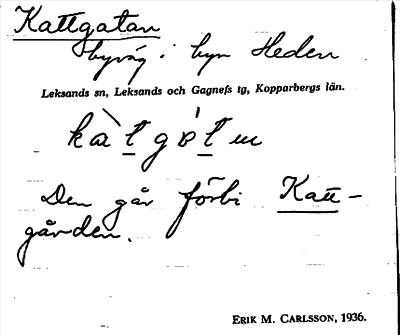 Kattgatan
byväg i byn Heden
Leksands sn, Leksands och Gagnefs tg, Kopparbergs län.
Den går förbi Katt-
gården.
ERIK M. CARLSSON, 1936.